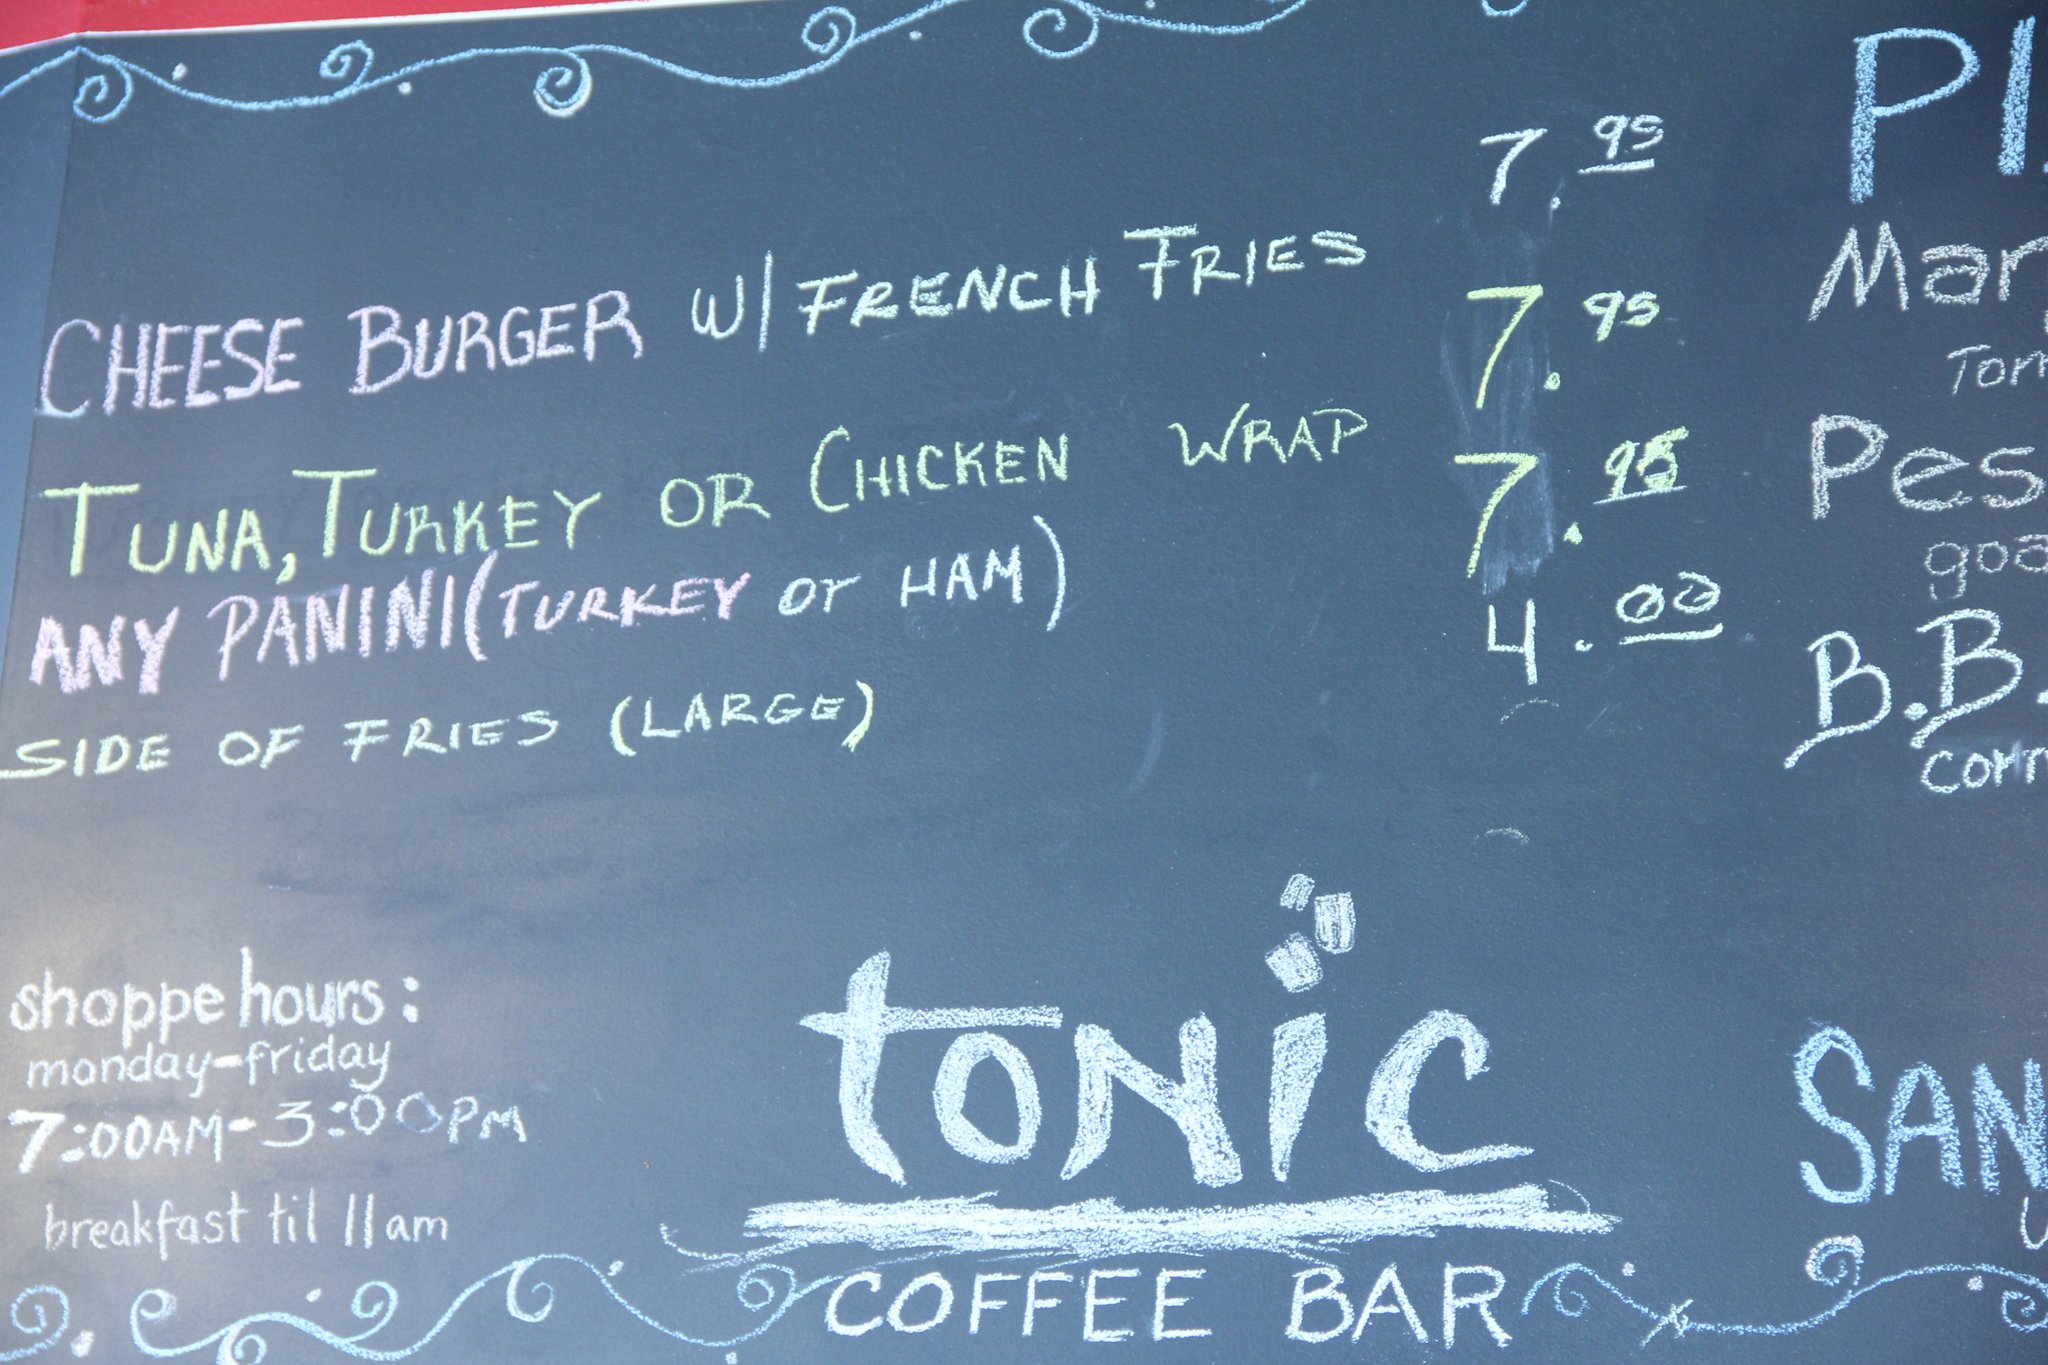 CHEESE BURGER W/ FRENCH FRIES 7.95
TUNA, TURKEY OR CHICKEN WRAP 7.95
ANY PANINI (TURKEY or HAM) 7.95
SIDE OF FRIES (LARGE) 4.00
shoppe hours:
monday-friday
7:00AM-3:00PM
breakfast til 11am
tonic
COFFEE BAR
PI
Mar
Tom
Pes
goa
B.B.
corn
SAN